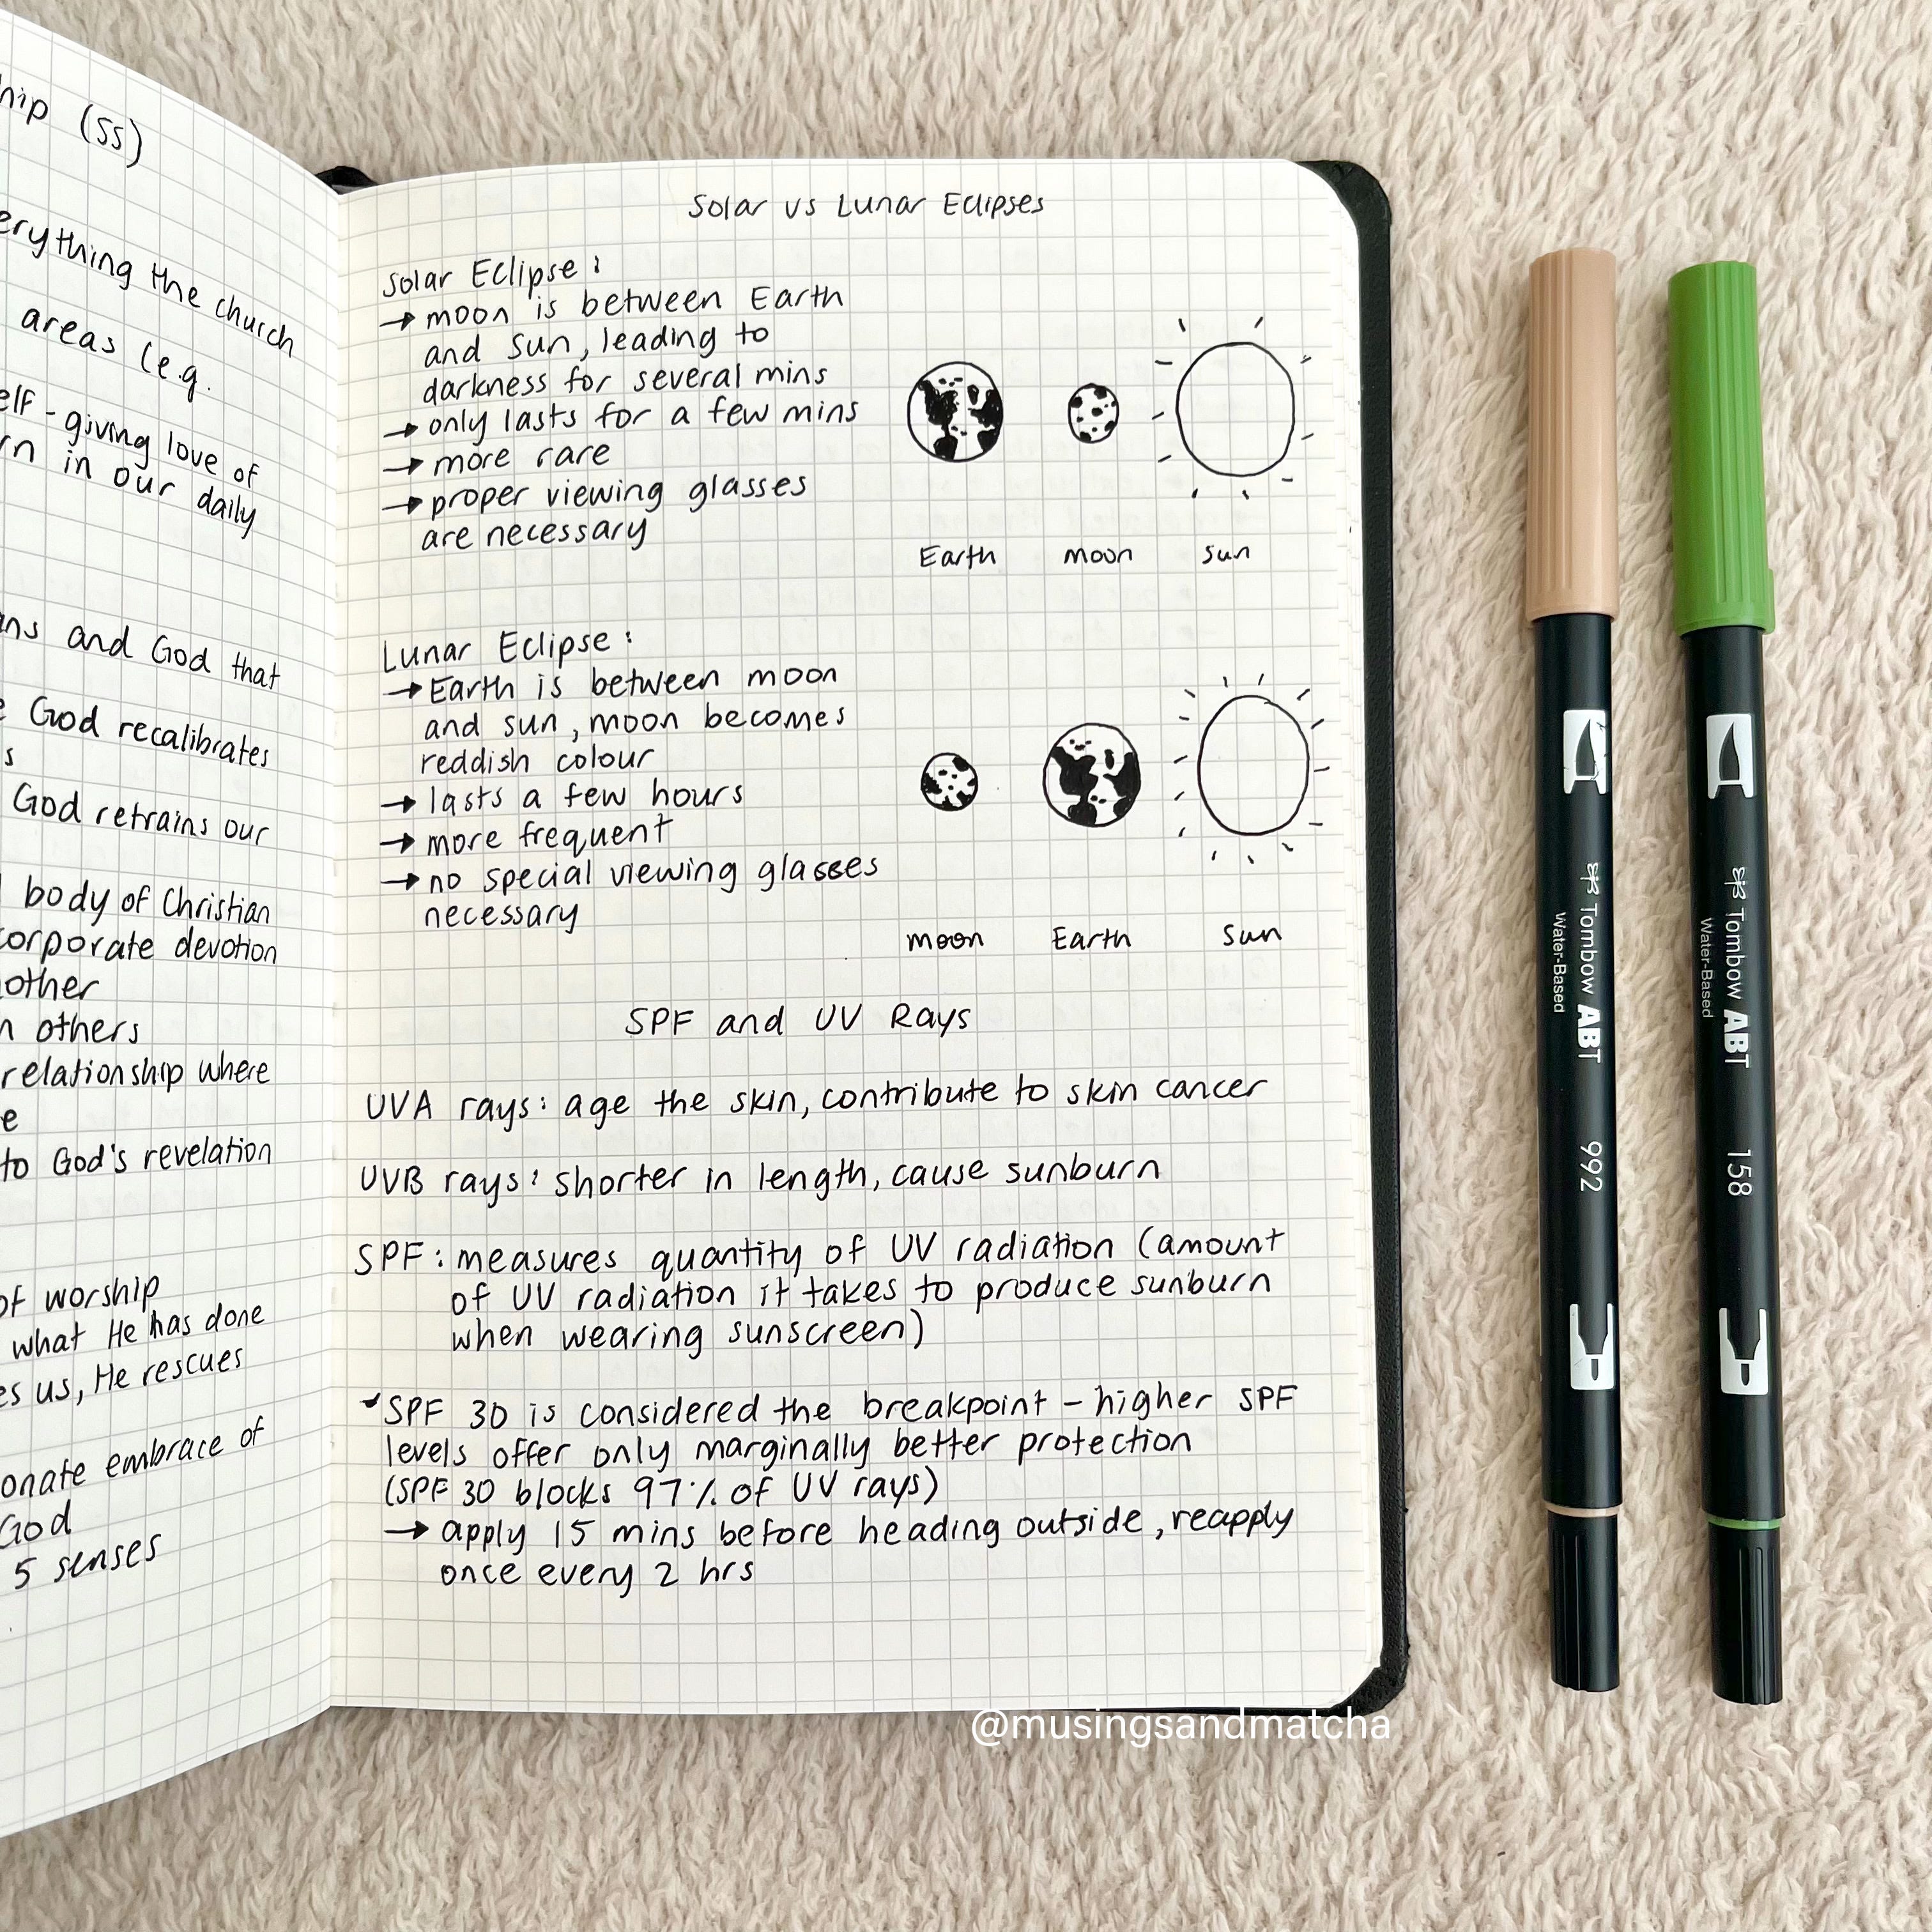 hip (SS)
erything the church
areas (e.g.
elf-giving love of
rn in our daily
ans and God that
e God recalibrates
s
God retrains our
body of Christian
corporate devotion
other
n others
relationship where
e
to God's revelation
of worship
what He has done
es us, He rescues
onate embrace of
God
5 senses
Solar vs Lunar Eclipses
Solar Eclipse:
→ moon is between Earth
and sun, leading to
darkness for several mins
→ only lasts for a few mins
→ more rare
→ proper viewing glasses
are necessary
Earth moon sun
Lunar Eclipse:
→ Earth is between moon
and sun, moon becomes
reddish colour
→ lasts a few hours
→ more frequent
→ no special viewing glasses
necessary
moon Earth sun
SPF and UV Rays
UVA rays: age the skin, contribute to skin cancer
UVB rays: shorter in length, cause sunburn
SPF: measures quantity of UV radiation (amount
of UV radiation it takes to produce sunburn
when wearing sunscreen)
SPF 30 is considered the breakpoint - higher SPF
levels offer only marginally better protection
(SPF 30 blocks 97% of UV rays)
→ apply 15 mins before heading outside, reapply
once every 2 hrs
@musingsandmatcha
Tombow ABT 992
Water-Based
Tombow ABT 158
Water-Based